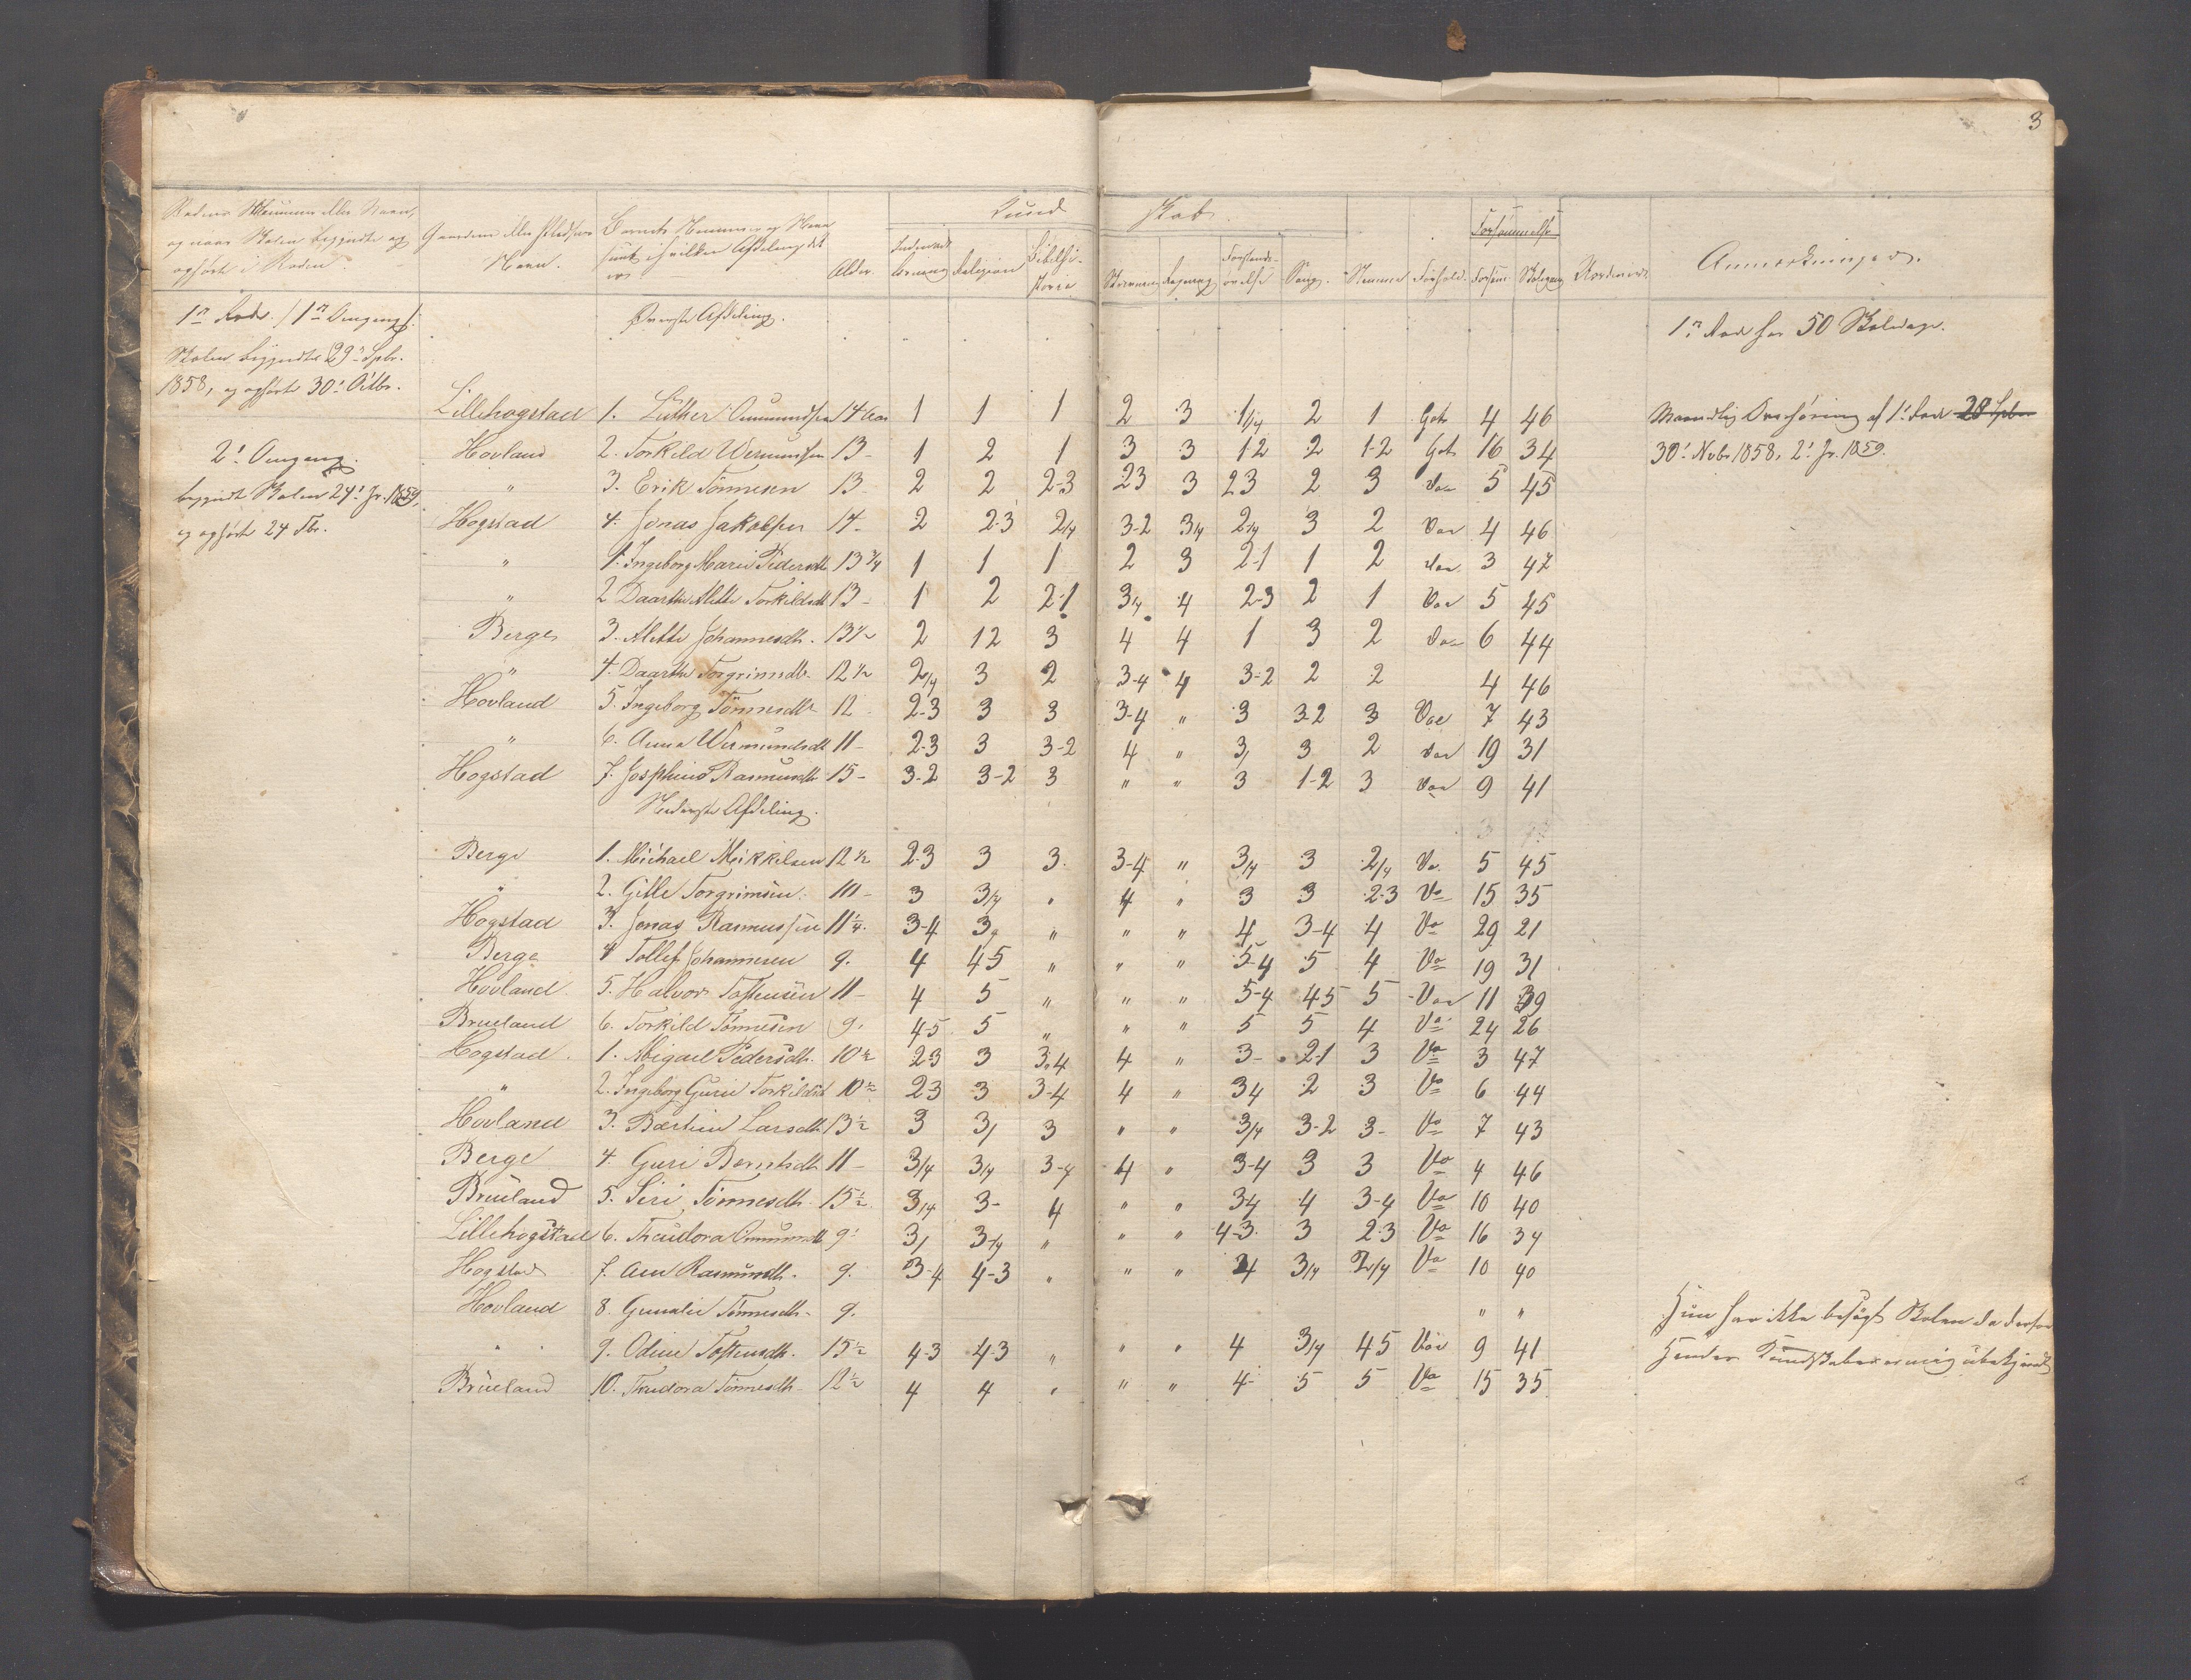 3
Rodens Nummer eller Navn,
og naar Skolen begyndte og
ophørte i Roden.
Gaardens eller Pladsens
Navn.
Barnets Nummer og Navn
samt i hvilken Afdeling det
er.
Alder.
Kund
skab.
Indenads
læsning
Religion
Bibelhi-
storie
Skrivning
Regning
Forstands-
øvelse
Sang.
Stemme
Forhold.
Forsømmelse
Forsømt
Skolegang
Anmærkninger.
1ste Rode. 1ste Omgang.
Øverste Afdeling.
1ste Rode har 50 Skoledage.
Skolen begyndte 29de Spbr.
1858, og ophørte 30te Octbr.
Lillehogstad 1. Luther Omundsen 14 Aar 1 1 1 2 3 1/4 2 1 Godt 4 46 Maanedlig Overhøring af 1ste Rode 28 Spbr
2den Omgang. Hovland 2. Torkild Wermundsen 13- 1 2 1 3 3 1-2 2 1-2 Godt 16 34 30te Nvbr 1858, 2den Jr. 1859.
begyndte Skolen 24de Jr. 1859, " 3. Erik Tönnesen 13- 2 2 2-3 23 3 23 2 3 do 5 45
og ophørte 24 Fbr. Hogstad 4. Jonas Jakobsen 14- 2 2-3 2/4 3-2 3/4 2/4 3 2 do 4 46
" 1. Ingeborg Marie Pedersdtr 13 3/4 1 1 1 2 3 2-1 1 2 do 3 47
" 2 Daarthe Alette Torkildsdtr 13- 1 2 2-1 3/4 4 2-3 2 1 do 5 45
Berge 3. Alette Johannesdtr. 13 1/2 2 12 3 4 4 1 3 2 do 6 44
" 4. Daarthe Torgrimsdtr. 12 1/2 2/4 3 2 3-4 4 3-2 2 2 4 46
Hovland 5. Ingeborg Tönnesdtr 12 2-3 3 3 3-4 " 3 3-2 3 do 7 43
" 6. Anna Wermundsdtr 11- 2-3 3 3-2 4 " 3/ 3 2 do 19 31
Hogstad 7. Josphine Rasmusdtr 15- 3-2 3-2 3 " " 3 1-2 3 do 9 41
Nederste Afdeling.
Berge 1. Michael Mikkelsen 12 1/2 2-3 3 3. 3-4 " 3/4 3 2/4 do 5 45
" 2. Gitle Torgrimsen. 10- 3 3/4 " 4 " 3 3 2-3 do 15 35
Hogstad 3. Jonas Rasmussen 11 1/4 3-4 3/4 " " " 4 3-4 4 do 29 21
Berge 4 Tollef Johannesen 9. 4 4-5 " " " 5-4 5 4 do 19 31
Hovland 5. Halvor Tostensen 11- 4 5 " " " 5-4 45 5 do 11 39
Brueland 6. Torkild Tönnesen 9. 4-5 5 " " " 5 5 4 do 24 26
Hogstad. 1. Abigael Pedersdtr. 10 1/2 2-3 3 3.4 4 " 3- 2-1 3 do 3 47
" 2. Ingeborg Gurie Torkildsdtr 10 1/2 2-3 3 3-4 4 " 34 2 3 do 6 44
Hovland 3. Bertine Larsdtr 13 1/2 3 3/ 3 " " 3/4 3-2 3- do 7 43
Berge 4. Guri Berntsdtr 11- 3/4 3/4 3-4 4 " 3-4 3 3 do 4 46
Brueland 5. Siri Tönnesdtr. 15 1/2 3/4 3- 4 " " 34 4 3-4 do 10 40
Lillehogstad 6. Theodora Omundsdtr 9. 3/ 3-4 " " " 4-3 3 2-3 do 16 34
Hogstad 7. Asn Rasmusdtr. 9. 3-4 4-3 " " " 4 3/4 2/4 do 10 40
Hovland 8. Gunalie Tönnesdtr. 9. " " Hun har ikke besøgt Skolen da derfor
" 9. Odine Tostensdtr. 15 1/2 4-3 4-3 " " " 4 3/4 4-5 do 9 41 hendes Kundskaber er mig ubekjendt
Brueland 10. Theodora Tönnesdtr. 12 1/2 4 4 " " " 4- 5 5 do 15 35